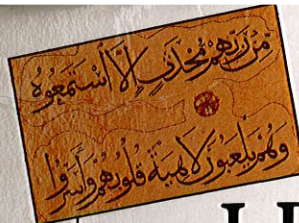 مِّن رَّبِّهِم مُّحْدَثٍ إِلَّا ٱسْتَمَعُوهُ
وَهُمْ يَلْعَبُونَ لَاهِيَةً قُلُوبُهُمْ وَأَسَرُّوا